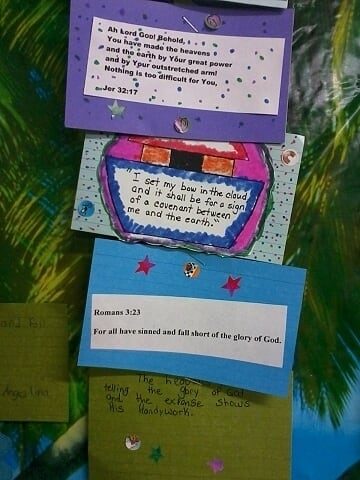 Ah Lord God! Behold,
You have made the heavens
and the earth by Your great power
and by Your outstretched arm!
Nothing is too difficult for You,
Jer 32:17
"I set my bow in the cloud
and it shall be for a sign
of a covenant between
me and the earth."
Romans 3:23
For all have sinned and fall short of the glory of God.
The
telling the glory of God
and the expanse shows
His Handywork.
Angelina